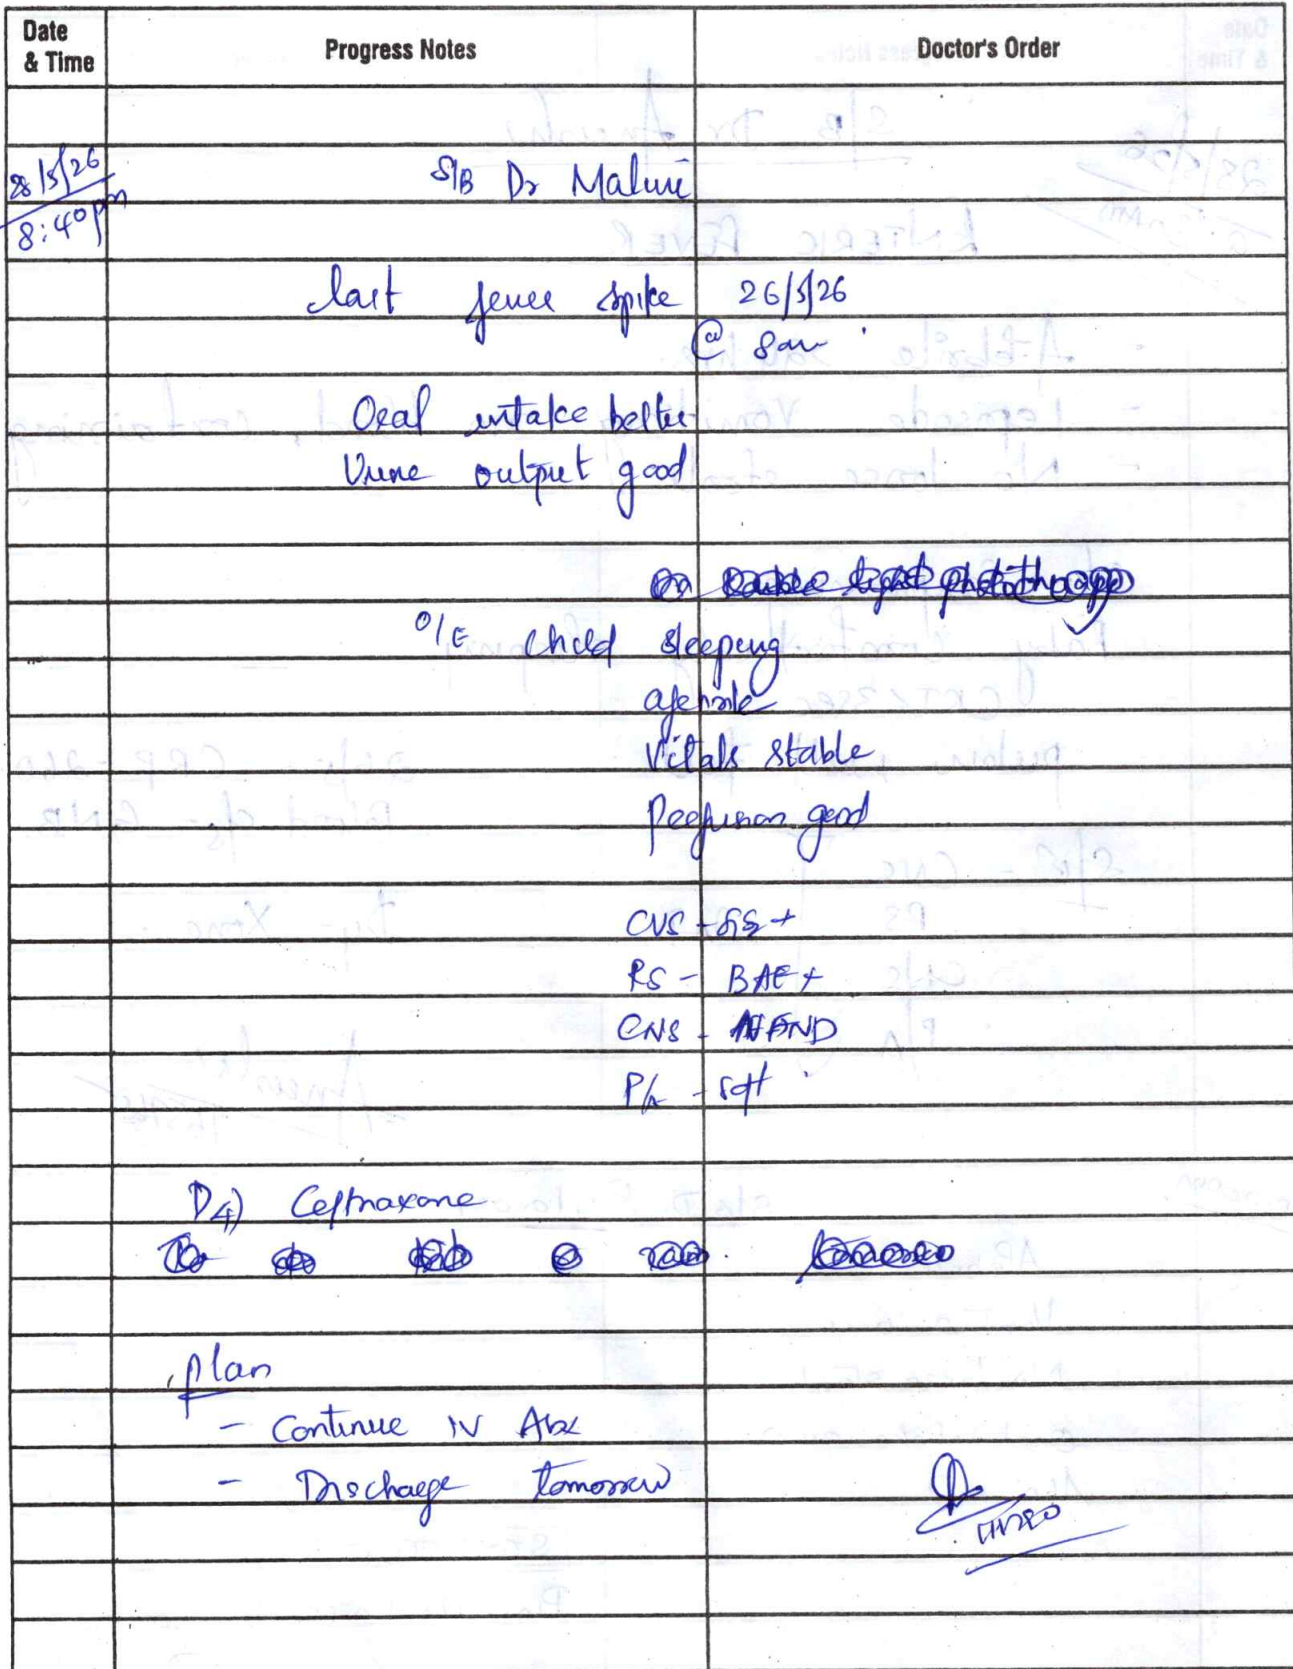 Date & Time Progress Notes Doctor's Order
28/5/26 S/B Dr Malini
8:40pm
last fever spike 26/5/26
@ 8am
Oral intake better
Urine output good
O/E Child sleeping
afebrile
Vitals stable
Perfusion good
CVS - S1S2 +
RS - BAE +
CNS - NFND
P/A - soft
D4) Ceftriaxone
plan
- Continue IV Abx
- Discharge tomorrow